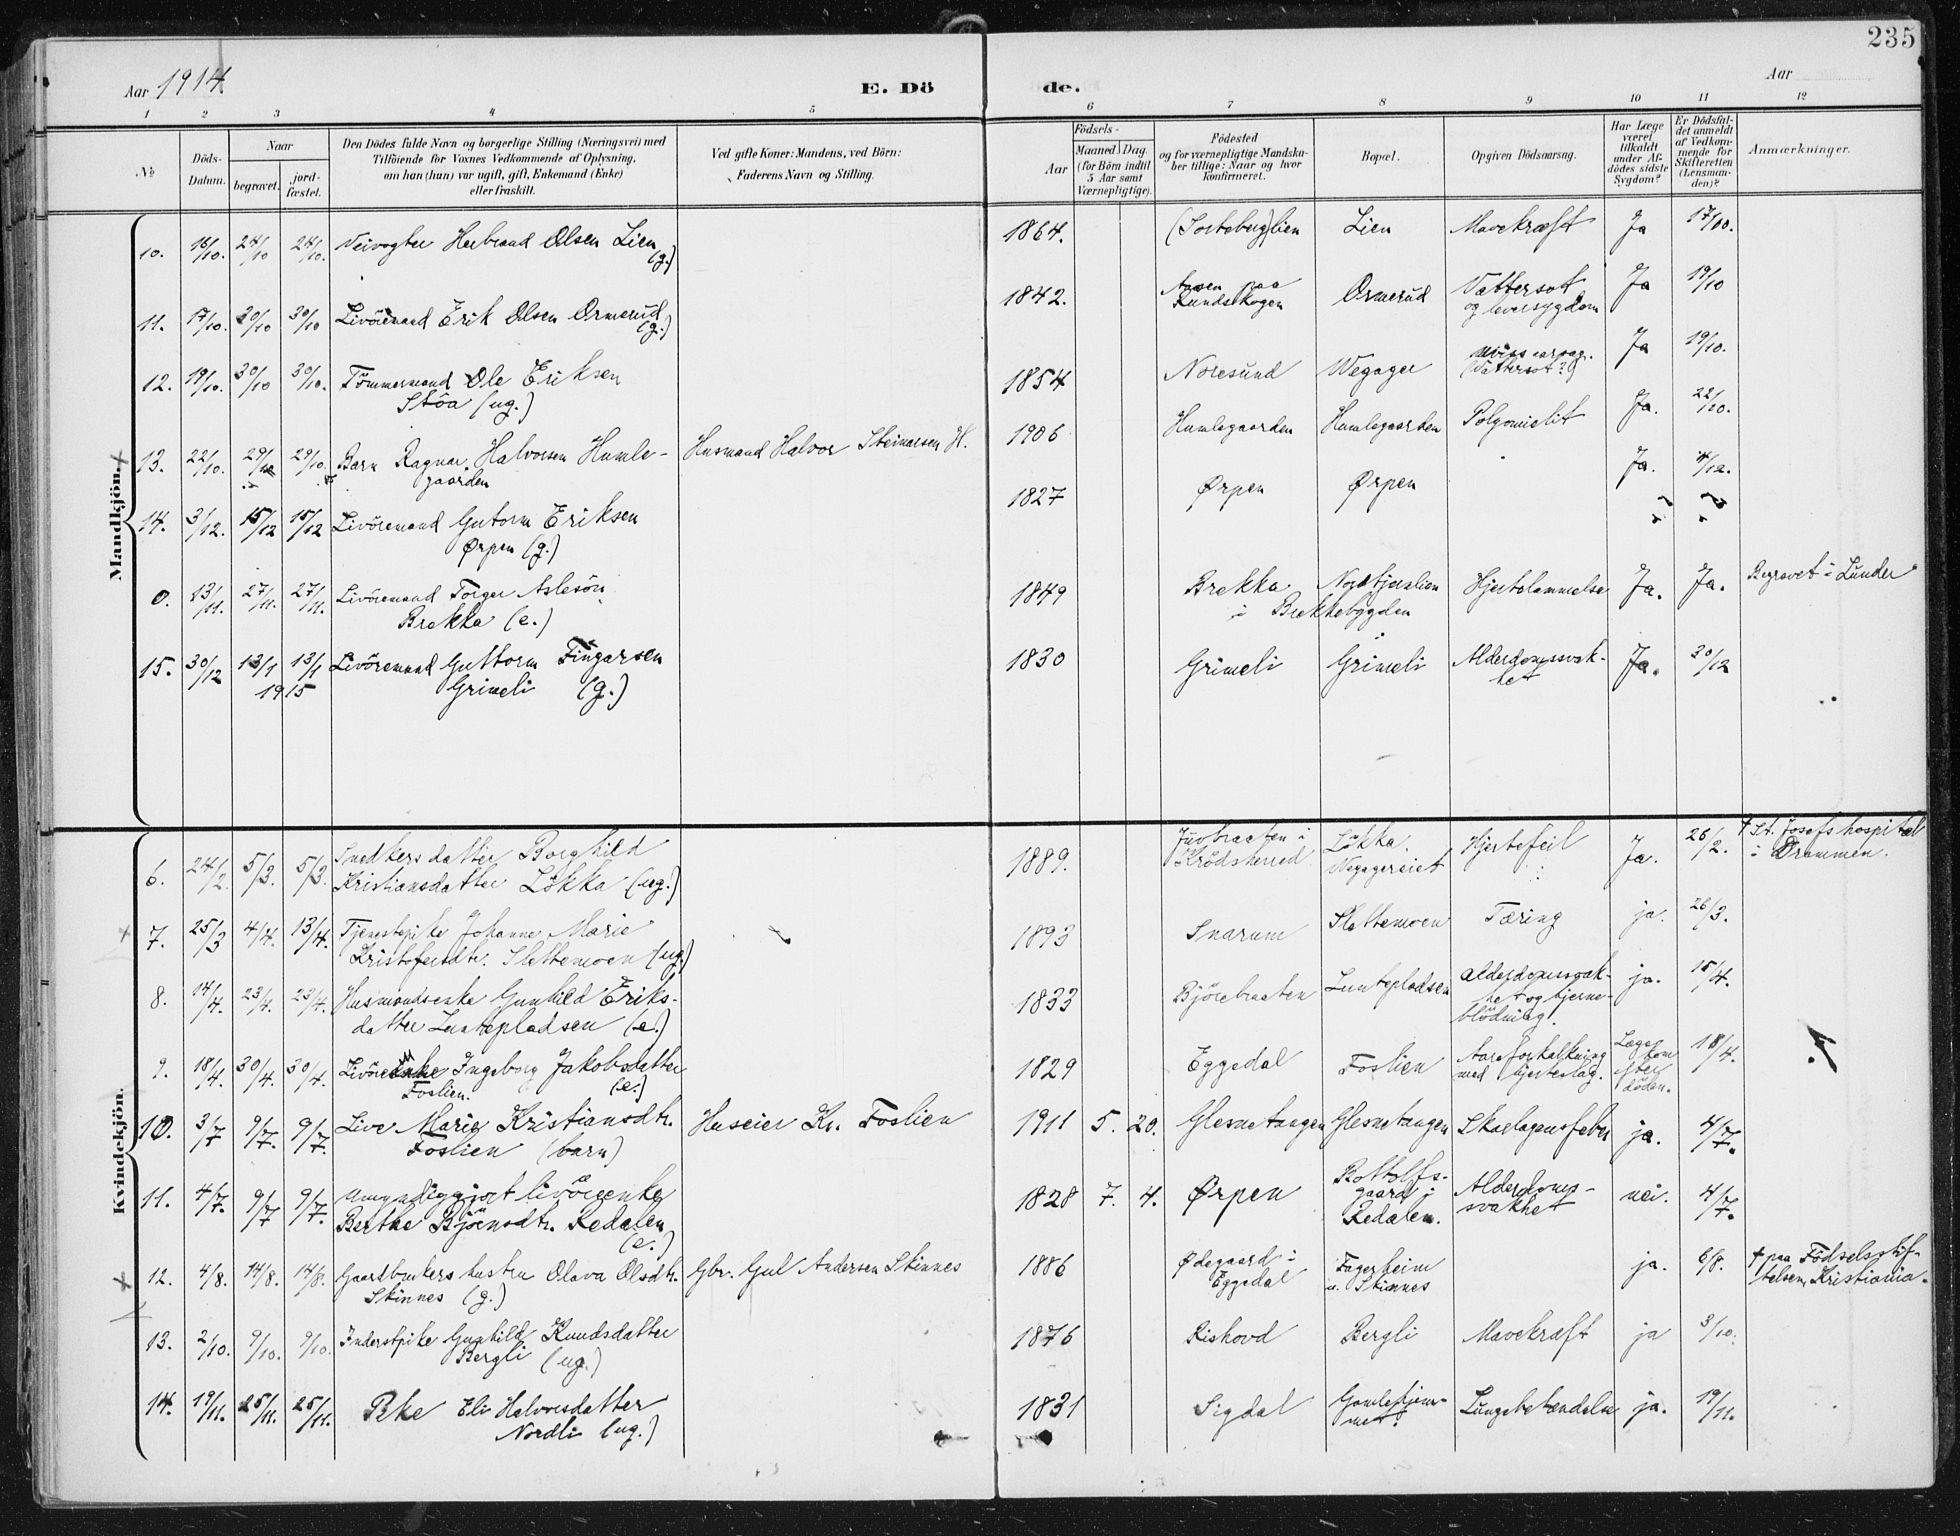 235
Aar 1914
E. Dö
de.
Aar
1 2 3 4 5 6 7 8 9 10 11 12
No
Döds-Datum.
Naar
begravet.
jord-fæstet.
Den Dödes fulde Navn og borgerlige Stilling (Næringsvei) med
Tilföiende for Voxnes Vedkommende af Oplysning,
om han (hun) var ugift, gift, Enkemand (Enke)
eller fraskilt.
Ved gifte Koner: Mandens, ved Börn:
Faderens Navn og Stilling.
Födsels-
Aar
Maaned Dag
(for Börn indtil
5 Aar samt
Værnepligtige).
Födested
og for værnepligtige Mandska-
ber tillige: Naar og hvor
konfirmeret.
Bopæl.
Opgiven Dödsaarsag.
Har Læge
været
tilkaldt
under Af-
dödes sidste
Sygdom?
Er Dödsfal-
det anmeldt
af Vedkom-
mende for
Skifteretten
(Lensman-
den)?
Anmærkninger.
Mandkjön.
10. 16/10. 24/10 24/10. Veivogter Herbrand Olsen Lien (g.) 1864. (Sorteberg)lien Lien Mavekræft Ja 17/10.
11. 17/10. 30/10 30/10 Livöremand Erik Olsen Ormerud (g.) 1842. Aasen paa Rundskogen Ormerud Vattersot og leversygdom Ja 19/10
12. 19/10. 30/10 30/10. Tömmermand Ole Eriksen
Stöa (ug.) 1854 Noresund Wegager (Vattersot?) Ja 19/10.
13. 22/10. 29/10 29/10. Barn Ragnar Halvorsen Humle-
gaarden Husmand Halvor Steinarsen H. 1906 Humlegaarden Humlegaarden Ja. 22/10.
14. 3/12. 15/12 15/12 Livöremand Gutorm Eriksen
Ørpen (g.) 1827 Ørpen Ørpen Ja. 4/12.
0. 13/11. 27/11. 27/11. Livöremand Torger Aslesön
Brekka (e.) 1849 Brekka i Brekkebygden Hjertelammelse Ja. Ja. Begravet i Lunder
15. 30/12 13/1 13/1 Livöremand Guttorm Fingarsen
1915 Grimeli (g.) 1830 Grimeli Grimeli Alderdomssvak-
het Ja. 30/12
Kvindekjön.
6. 24/2. 5/3. 5/3. Snedkersdatter Borghild
Kristiansdatter Lökka (ug.) 1889. Juvbraaten i Krödsherred Lökka. Wegagereiet Hjertefeil Ja. 26/2. † St. Josefs hospital
i Drammen.
7. 25/3 4/4. 13/4. Tjenestepike Johanne Marie
Kristofersdtr. Slettemoen (ug.) 1893 Snarum Slettemoen Tæring ja. 26/3.
8. 14/4 23/4. 23/4. Husmandsenke Gunhild Eriks-
datter Luntepladsen (e.) 1833 Björebraaten Luntepladsen Alderdomssvak-
het og hjerne-
blödning. ja. 15/4.
9. 18/4. 30/4. 30/4. Livörenke Ingeborg Jakobsdatter
Foslien. (e.) 1829 Eggedal Foslien Aareforkalkning
med hjerteslag. Læge kom efter döden. 18/4.
10. 3/7 9/7. 9/7. Live Marie Kristiansdtr.
Foslien (barn) Huseier Kr. Foslien 1911 5. 20. Glesnetangen Glesnetangen Skarlagensfeber ja. 4/7.
11. 4/7. 9/7 9/7. Umyndiggjort livörenke
Berthe Björnsdtr. Redalen
(e.) 1828 7. 4. Ørpen Bottolfs-
gaard i
Redalen. Alderdoms-
svakhet nei. 4/7.
12. 4/8. 14/8. 14/8. Gaardbrukers hustru Olava Olsdtr.
Skinnes (g.) Gbr. Gul Andersen Skinnes 1886 Ødegaard i
Eggedal Fagerheim
u. Skinnes ja. 6/8. † paa Födselsstif-
telsen, Kristiania.
13. 2/10. 9/10. 9/10. Inderstpike Gunhild Knudsdatter
Bergli (ug.) 1876 Rishovd Bergli Mavekræft ja 3/10.
14. 19/11. 25/11. 25/11. Pike Eli Halvorsdatter
Nordli (ug.) 1831 Sigdal Gamlehjem-
met. Lungebetændelse ja. 19/11.